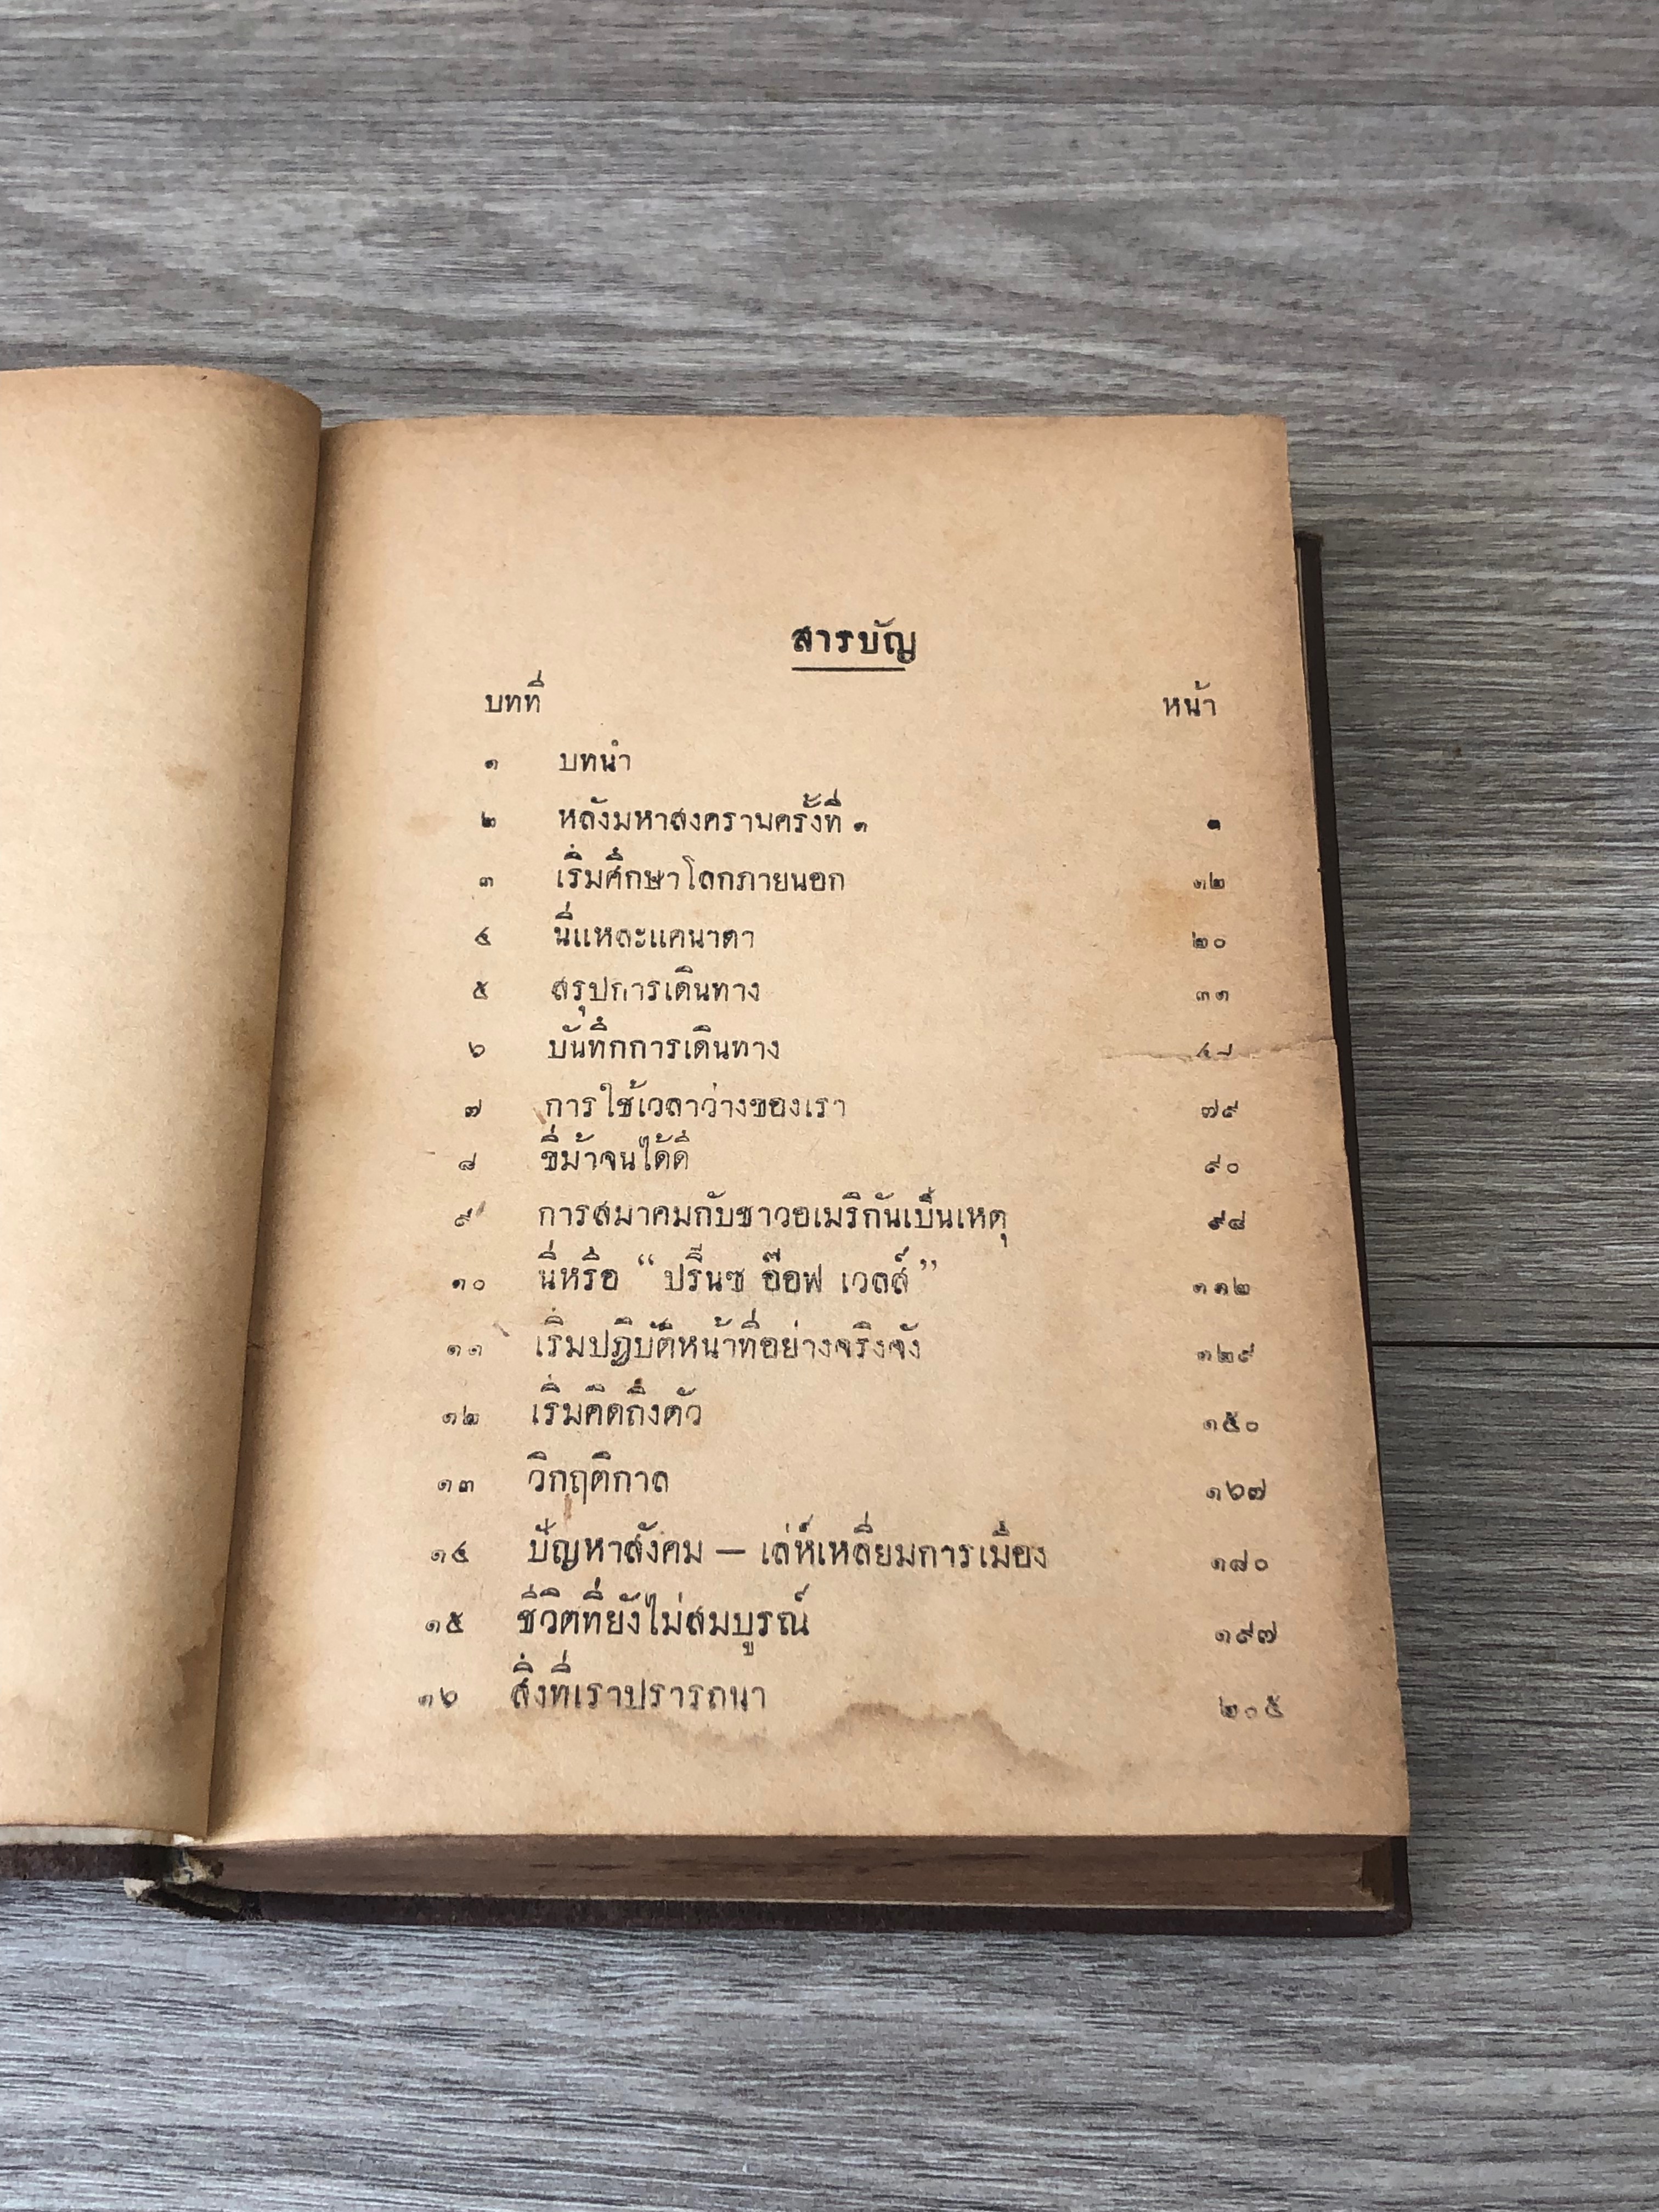 สารบัญ
บทที่ หน้า
๑ บทนำ
๒ หลังมหาสงครามครั้งที่ ๑ ๑
๓ เริ่มศึกษาโลกภายนอก ๑๒
๔ นี่แหละแคนาดา ๒๐
๕ สรุปการเดินทาง ๓๑
๖ บันทึกการเดินทาง
๗ การใช้เวลาว่างของเรา ๗๙
๘ ขี่ม้าจนได้ดี ๙๐
๙ การสมาคมกับชาวอเมริกันเป็นเหตุ ๙๘
๑๐ นี่หรือ “ปรีนซ อ๊อฟ เวลส์” ๑๑๒
๑๑ เริ่มปฏิบัติหน้าที่อย่างจริงจัง ๑๒๙
๑๒ เริ่มคิดถึงตัว ๑๕๐
๑๓ วิกฤติกาล ๑๖๗
๑๔ ปัญหาสังคม — เล่ห์เหลี่ยมการเมือง ๑๘๐
๑๕ ชีวิตที่ยังไม่สมบูรณ์ ๑๙๗
๑๖ สิ่งที่เราปรารถนา ๒๐๕